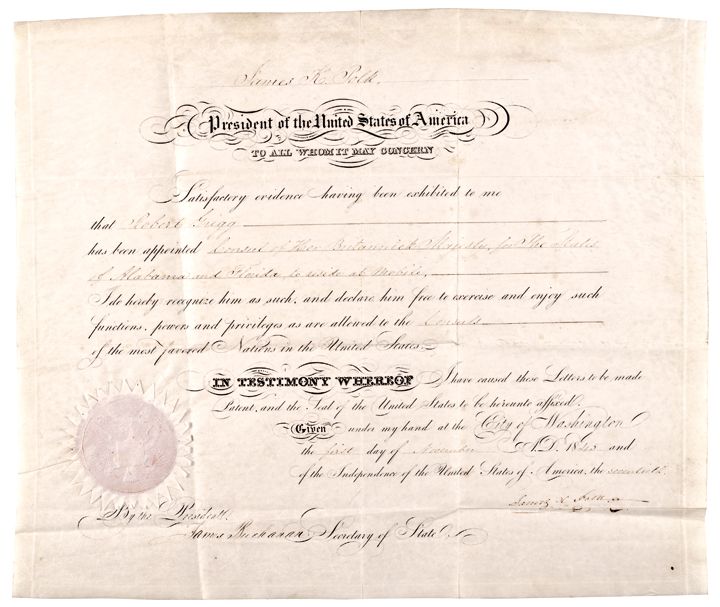 James K. Polk.
President of the United States of America
TO ALL WHOM IT MAY CONCERN
Satisfactory evidence having been exhibited to me
that Robert Grigg
has been appointed Consul of Her Britannick Majesty, for The States
of Alabama and Florida, to reside at Mobile,
I do hereby recognize him as such, and declare him free to exercise and enjoy such
functions, powers and privileges as are allowed to the Consuls
of the most favored Nations in the United States.
IN TESTIMONY WHEREOF I have caused these Letters to be made
Patent, and the Seal of the United States to be hereunto affixed.
Given under my hand at the City of Washington
the first day of November A.D. 1845 and
of the Independence of the United States of America, the seventieth.
James K. Polk
By the President.
James Buchanan Secretary of State.